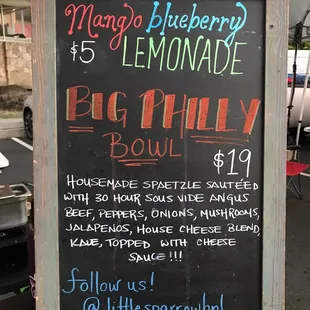 Mango blueberry
$5 LEMONADE
BIG PHILLY
BOWL
$19
HOUSEMADE SPAETZLE SAUTÉED
WITH 30 HOUR SOUS VIDE ANGUS
BEEF, PEPPERS, ONIONS, MUSHROOMS,
JALAPENOS, HOUSE CHEESE BLEND,
KALE, TOPPED WITH CHEESE
SAUCE !!!
follow us!
@littlesparrowhnl